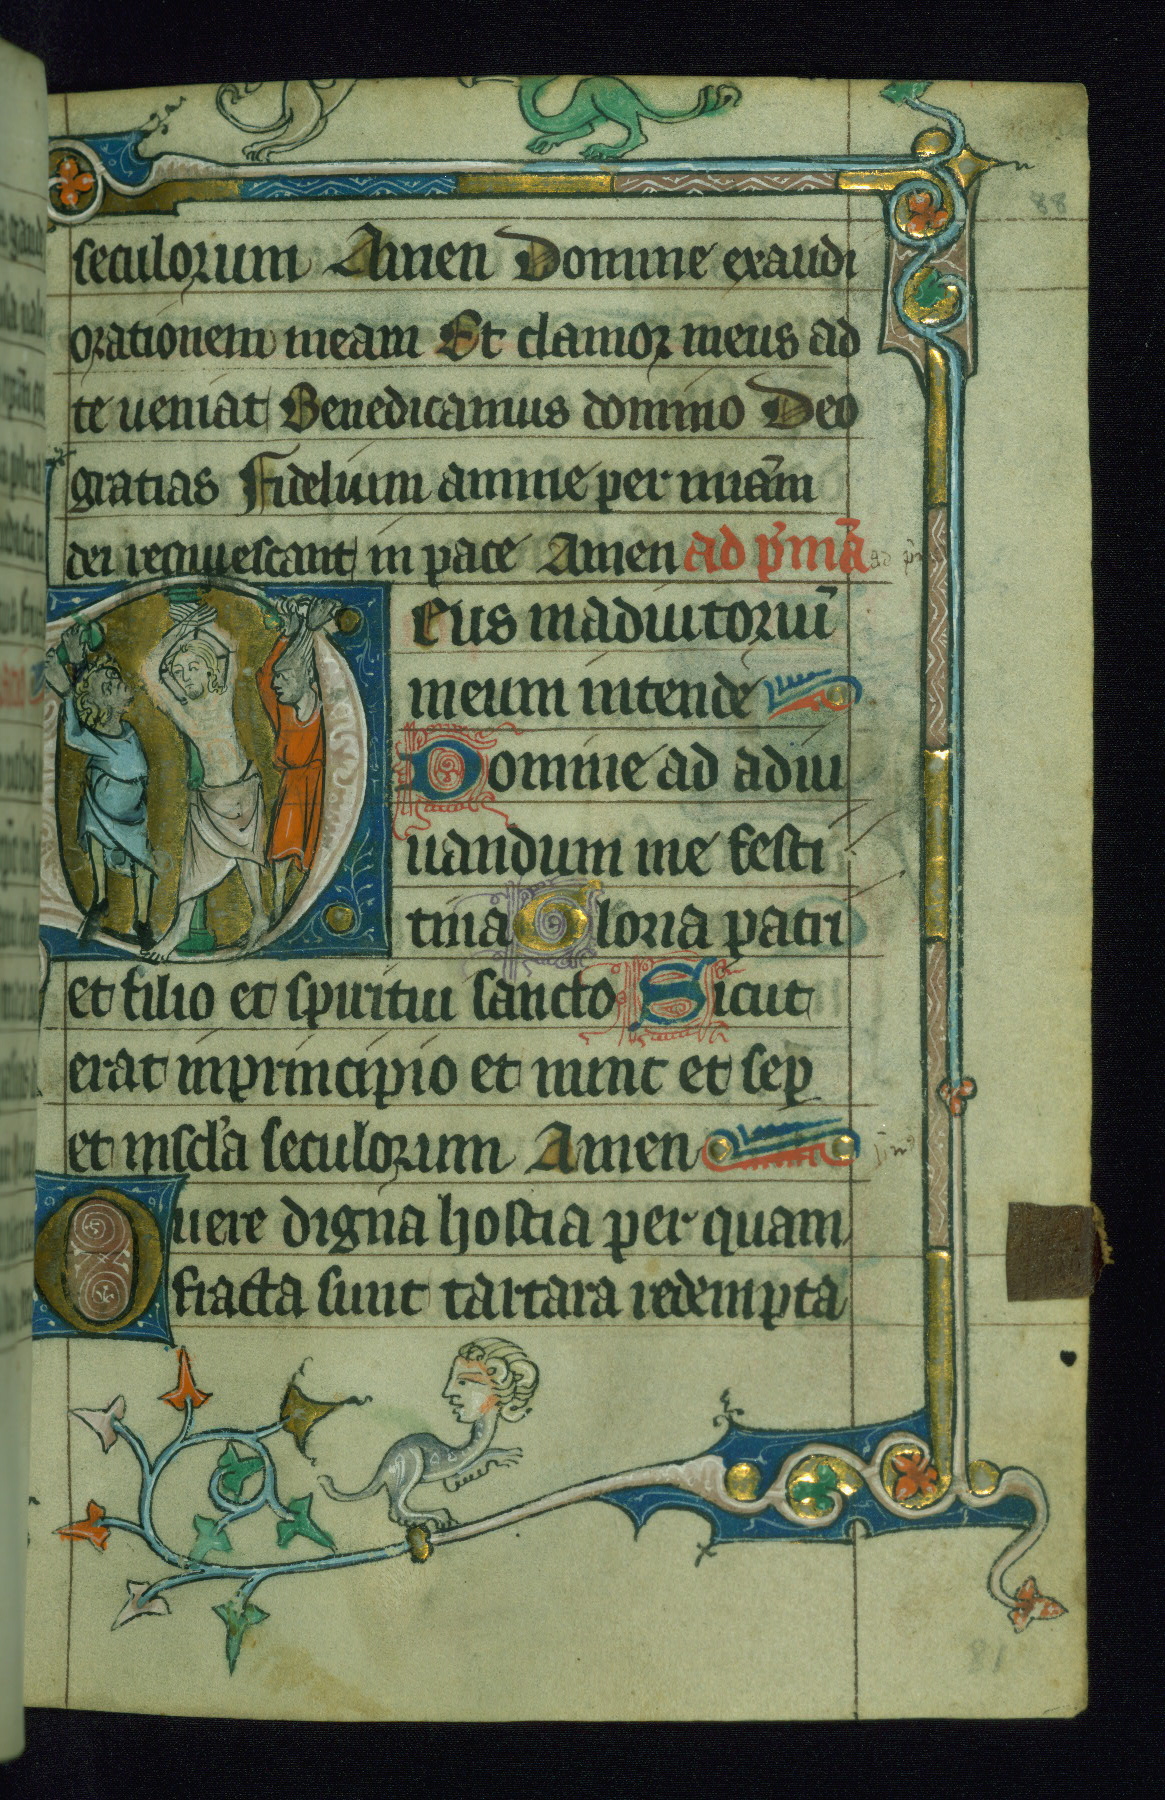 88
seculorum Amen Domine exaudi
orationem meam Et clamor meus ad
te ueniat Benedicamus domino Deo
gratias Fidelium anime per miãm
dei requiescant in pace Amen ad p̓mã
Deus in adiutoriũ
meum intende
Domine ad adiu
uandum me festi
tina Gloria patri
et filio et spiritui sancto Sicut
erat inprincipio et nunc et sep̱
et inscl̓a seculorum Amen
O uere digna hostia per quam
fracta sunt tartara redempta
81